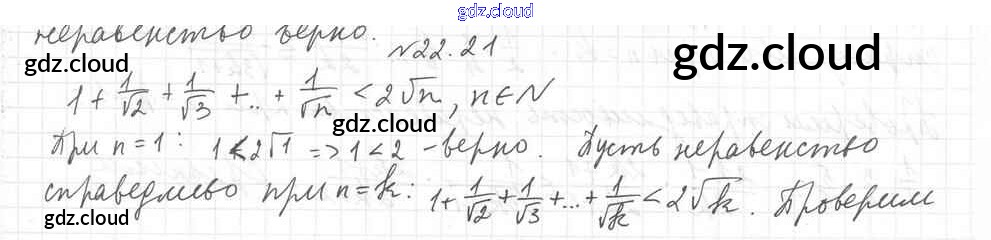 gdz.cloud
неравенство верно.
№22.21
gdz.cloud
gdz.cloud
1 + 1/√2 + 1/√3 + .. + 1/√n < 2√n, n∈N
gdz.cloud
При n=1: 1<2√1 => 1<2 -верно. Пусть неравенство
справедливо при n=k: 1+ 1/√2 + 1/√3 +...+ 1/√k < 2√k. Проверим
gdz.cloud